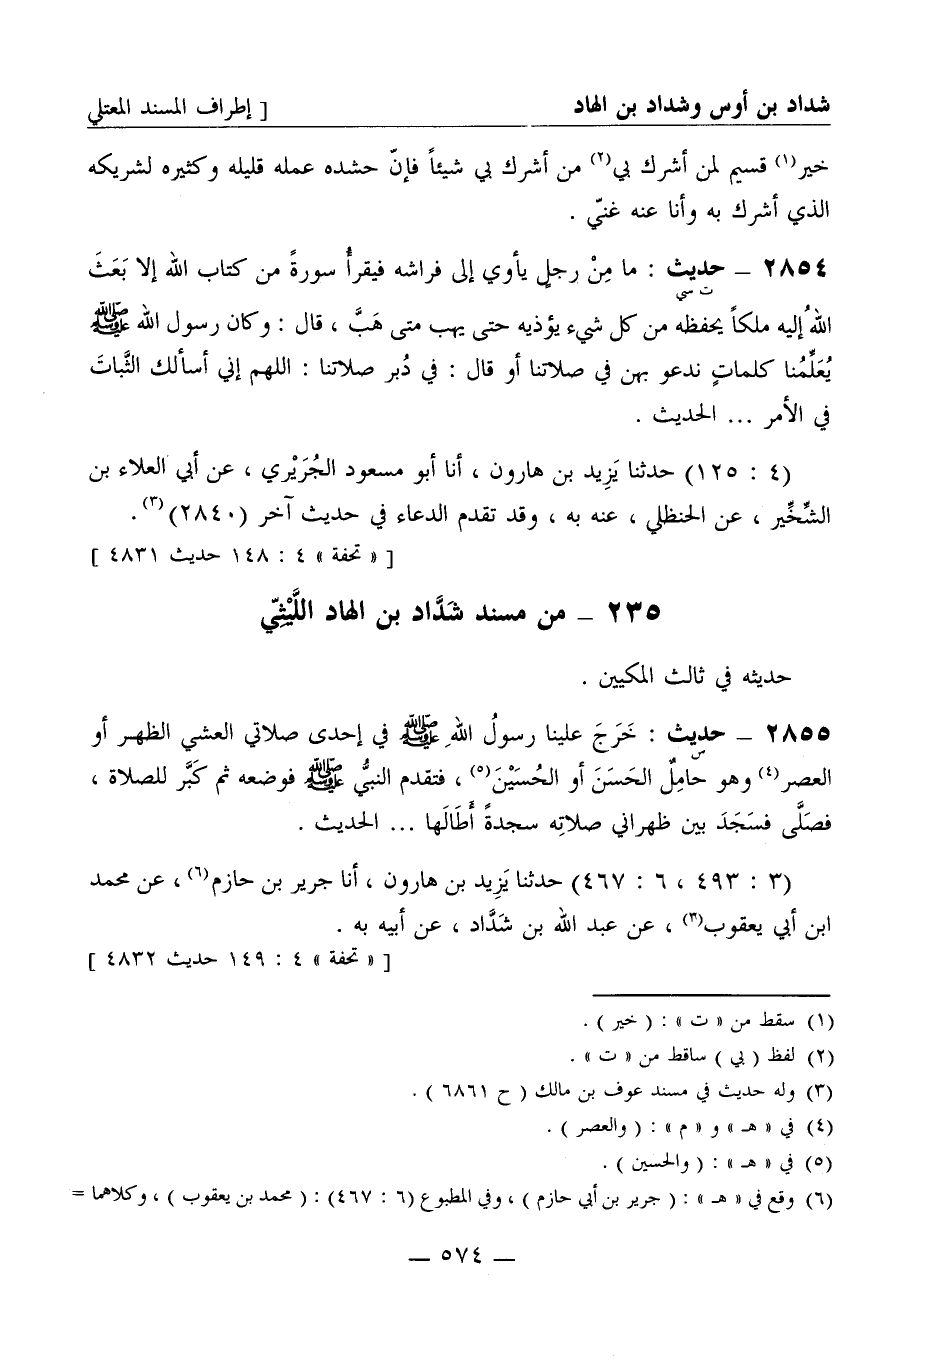 شداد بن أوس وشداد بن الهاد [ إطراف المسند المعتلي
خير(١) قسيم لمن أشرك بي(٢) من أشرك بي شيئاً فإنّ حشده عمله قليله وكثيره لشريكه
الذي أشرك به وأنا عنه غنيّ .
٢٨٥٤ ــ حديث : ما مِنْ رجلٍ يأوي إلى فراشه فيقرأُ سورةً من كتاب الله إلا بَعَثَ
ت سي
اللهُ إليه ملكاً يحفظه من كل شيء يؤذيه حتى يهب متى هَبَّ ، قال : وكان رسول الله ﷺ
يُعَلِّمُنا كلماتٍ ندعو بهن في صلاتنا أو قال : في دُبر صلاتنا : اللهم إني أسألك الثَّباتَ
في الأمر ... الحديث .
(٤ : ١٢٥) حدثنا يَزِيد بن هارون ، أنا أبو مسعود الجُرَيْري ، عن أبي العلاء بن
الشِّخِّير ، عن الحنظلي ، عنه به ، وقد تقدم الدعاء في حديث آخر (٢٨٤٠)(٣) .
[ « تحفة » ٤ : ١٤٨ حديث ٤٨٣١ ]
٢٣٥ ــ من مسند شَدَّاد بن الهاد اللَّيْثِيّ
حديثه في ثالث المكيين .
٢٨٥٥ ــ حديث : خَرَجَ علينا رسولُ اللهِ ﷺ في إحدى صلاتي العشي الظهر أو
س
العصر(٤) وهو حامِلٌ الحَسَنَ أو الحُسَيْنَ(٥) ، فتقدم النبيُّ ﷺ فوضعه ثم كَبَّر للصلاة ،
فصَلَّى فسَجَدَ بين ظهراني صلاتِه سجدةً أَطَالَها ... الحديث .
(٣ : ٤٩٣ ، ٦ : ٤٦٧) حدثنا يَزِيد بن هارون ، أنا جرير بن حازم(٦) ، عن محمد
ابن أبي يعقوب(٣) ، عن عبد الله بن شَدَّاد ، عن أبيه به .
[ « تحفة » ٤ : ١٤٩ حديث ٤٨٣٢ ]
(١) سقط من « ت » : ( خير ) .
(٢) لفظ ( بي ) ساقط من « ت » .
(٣) وله حديث في مسند عوف بن مالك ( ح ٦٨٦١ ) .
(٤) في « هـ » و « م » : ( والعصر ) .
(٥) في « هـ » : ( والحسين ) .
(٦) وقع في « هـ » : ( جرير بن أبي حازم ) ، وفي المطبوع (٦ : ٤٦٧) : ( محمد بن يعقوب ) ، وكلاهما =
ــ ٥٧٤ ــ